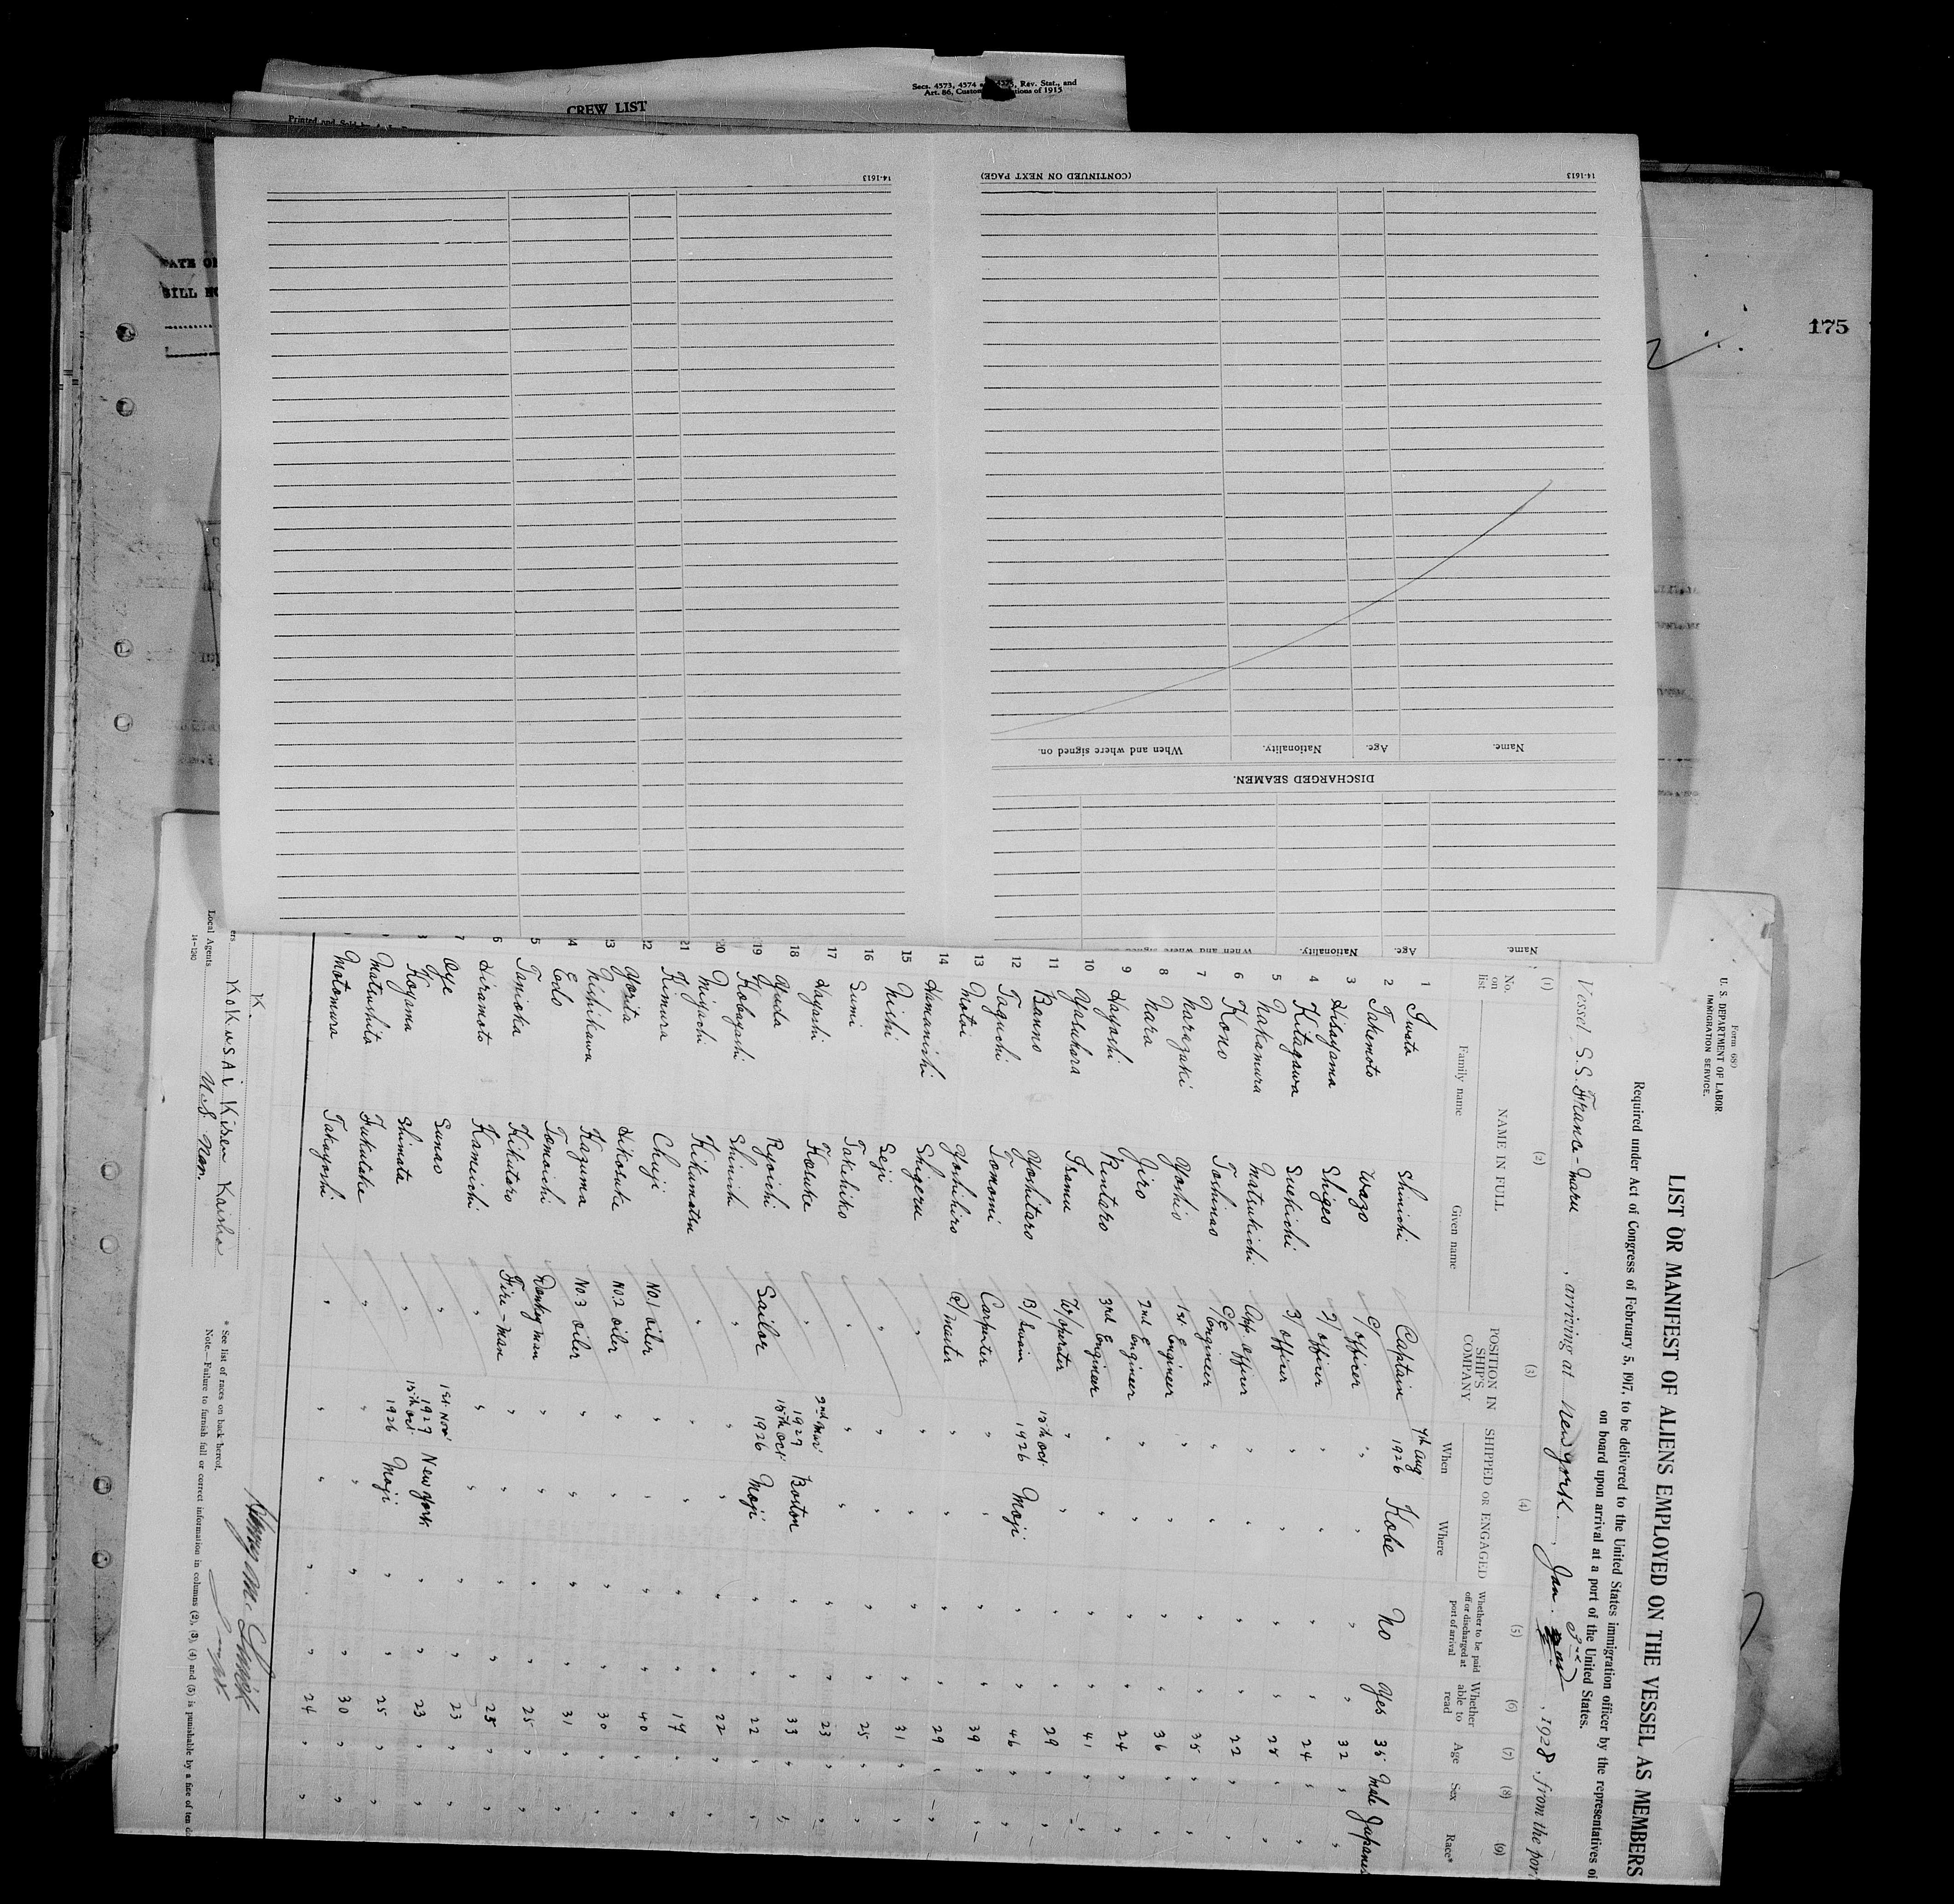 Secs. 4573, 4574 a 4575, Rev. Stat., and
Art. 86, Custom tions of 1915
CREW LIST
Printed and Sold by
175
ATE O
BILL NO
14-1613
(CONTINUED ON NEXT PAGE)
14-1613
Name. Age. Nationality. When and where signed on.
DISCHARGED SEAMEN.
Name. Age. Nationality. When and where signed on.
Form 689
U. S. DEPARTMENT OF LABOR
IMMIGRATION SERVICE.
LIST OR MANIFEST OF ALIENS EMPLOYED ON THE VESSEL AS MEMBERS
Required under Act of Congress of February 5, 1917, to be delivered to the United States immigration officer by the representatives of
on board upon arrival at a port of the United States.
Vessel S.S. France-Maru, arriving at New York, Jan. 3rd, 1928, from the port
(1) (2) (3) (4) (5) (6) (7) (8) (9)
No. on list NAME IN FULL Family name Given name POSITION IN SHIP'S COMPANY SHIPPED OR ENGAGED When Where Whether to be paid off or discharged at port of arrival Whether able to read Age Sex Race*
1 Iwata Shinichi Captain 7th Aug 1926 Kobe No Yes 35 Male Japanese
2 Takemoto Wazo C/officer " " " " 32 " "
3 Hisayama Shigeo 2/officer " " " " 24 " "
4 Kitagawa Suekichi 3/officer " " " " 28 " "
5 Nakamura Matsukichi App. officer " " " " 22 " "
6 Kono Toshinao C/Engineer " " " " 35 " "
7 Narazaki Yoshio 1st Engineer " " " " 36 " "
8 Nara Jiro 2nd Engineer " " " " 24 " "
9 Hayashi Rintaro 3rd Engineer " " " " 41 " "
10 Yasuhara Isamu W/operator " " " " 29 " "
11 Banno Yoshitaro B/swain 15th Oct. 1926 Moji " " 46 " "
12 Taguchi Tomomi Carpenter " " " " 39 " "
13 Motoi Yoshihiro Q/master " " " " 29 " "
14 Hamanishi Shigeru " " " " " 31 " "
15 Nishi Seji " " " " " 25 " "
16 Sumi Takehiko " " " " " 23 " "
17 Hayashi Kosuke " 2nd Mar 1927 Boston " " 33 " "
18 Yuda Ryoichi Sailor 15th Oct. 1926 Moji " " 22 " "
19 Kobayashi Shinichi " " " " " 22 " "
20 Miyachi Kikumatsu " " " " " 19 " "
21 Kimura Chuji No.1 oiler " " " " 40 " "
22 Yorita Hikosuke No.2 oiler " " " " 30 " "
23 Nishikawa Kazuma No.3 oiler " " " " 31 " "
4 Endo Tomoichi Donkey man " " " " 25 " "
5 Tanioka Kikutaro Fire-man " " " " 25 " "
6 Hiramoto Kameichi " " " " " 23 " "
7 Oye Sunao " 1st Nov 1927 New York " " 23 " "
8 Koyama Shimata " 15th Oct 1926 Moji " " 25 " "
Matsushita Fukutake " " " " " 30 " "
Motomura Takayoshi " " " " " 24 " "
K.
ers Kokusai Kisen Kaisha
Local Agents
14-1230
* See list of races on back hereof.
Note.—Failure to furnish full or correct information in columns (2), (3), (4) and (5) is punishable by a fine of ten do